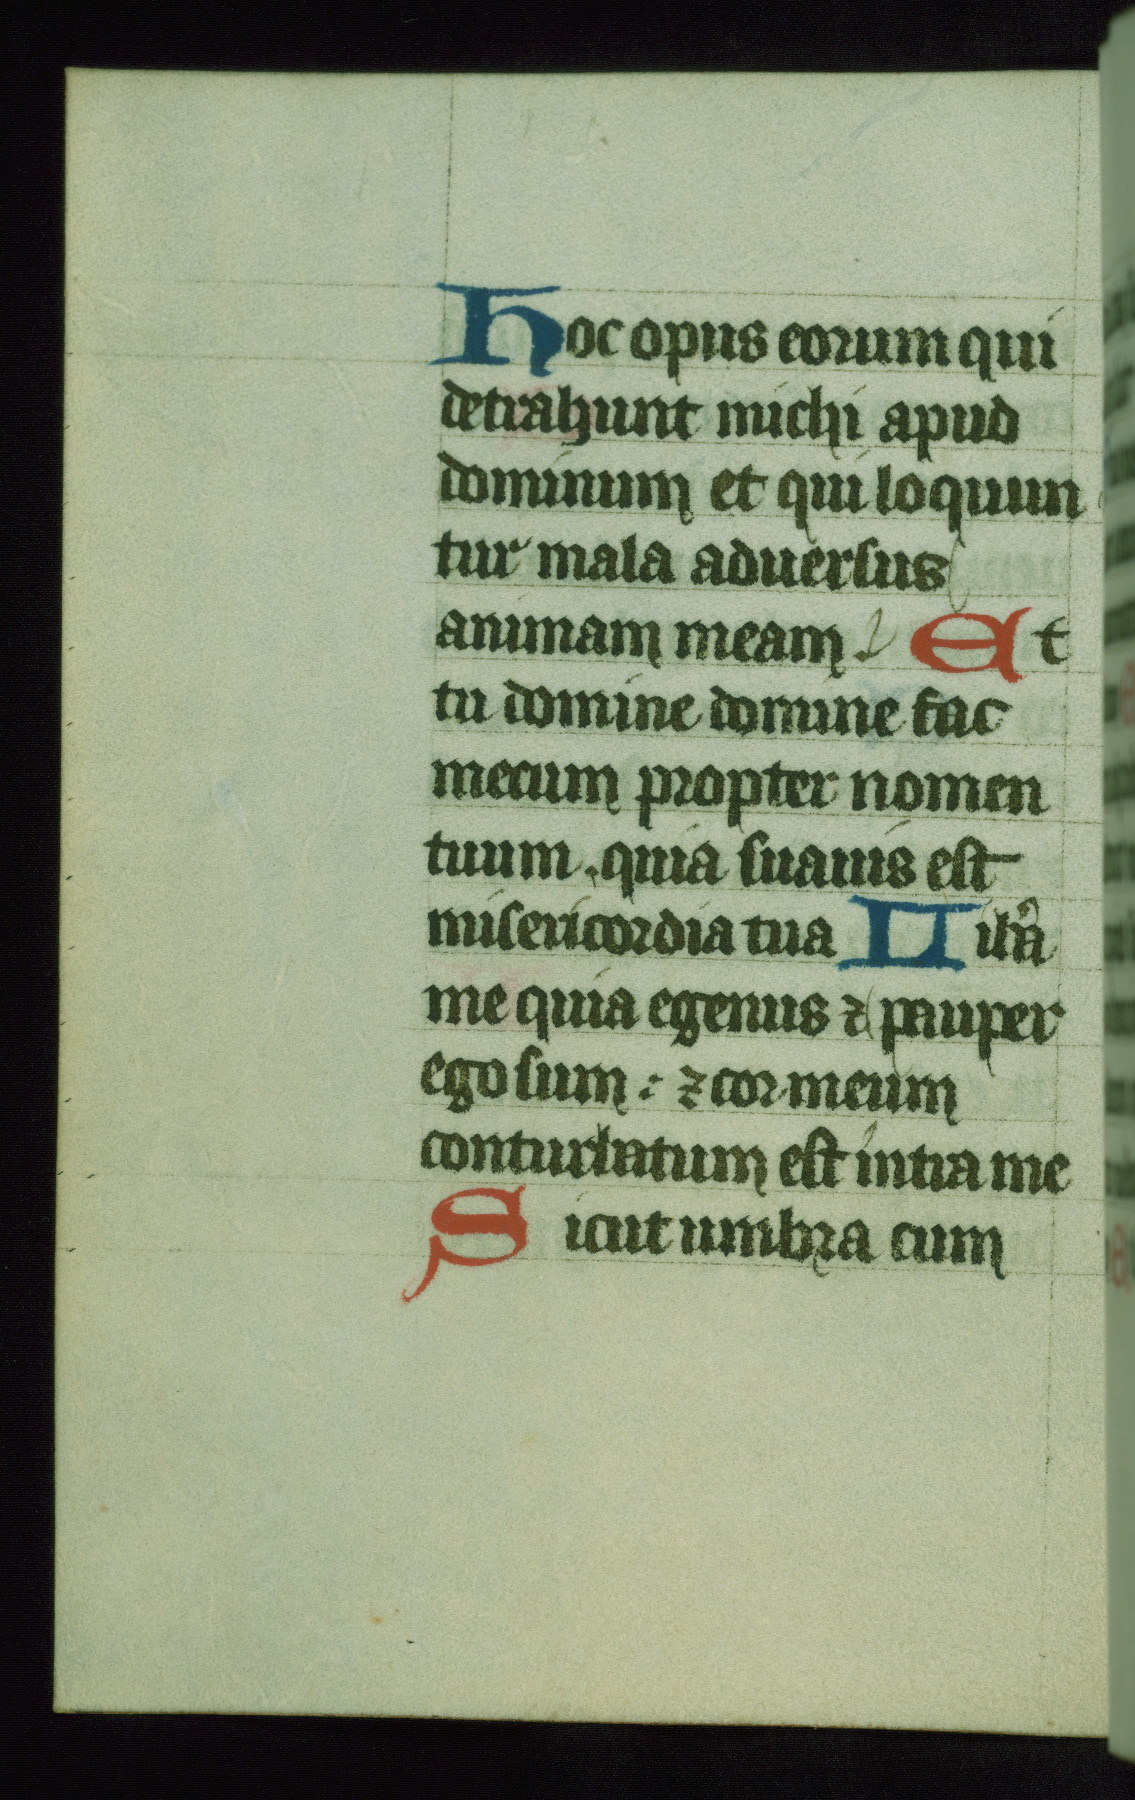 Hoc opus eorum qui
detrahunt michi apud
dominum et qui loquun
tur mala aduersus
animam meam Et
tu domine domine fac
mecum propter nomen
tuum . quia suauis est
misericordia tua Li
me quia egenus ⁊ pauper
ego sum : ⁊ cor meum
conturbatum est intra me
Sicut umbra cum